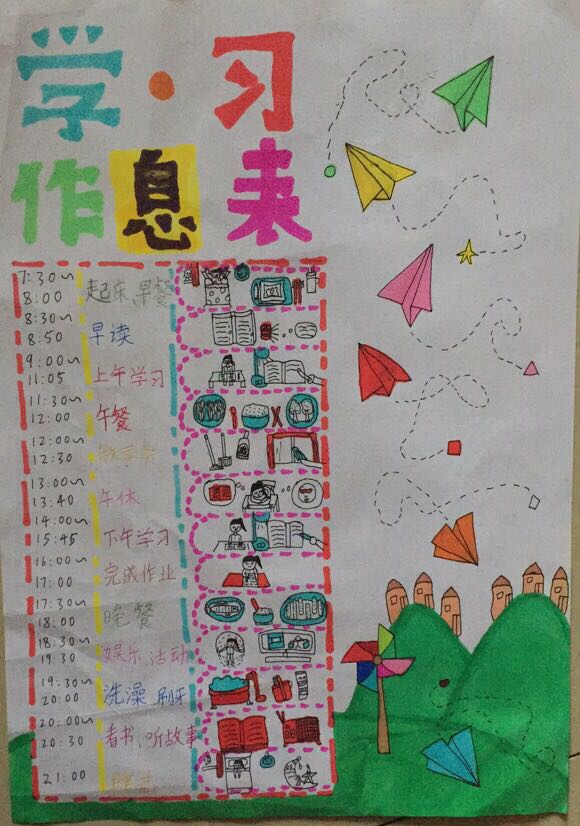 学·习
作息表
7:30~8:00 起床、早餐
8:30~8:50 早读
9:00~11:05 上午学习
11:30~12:00 午餐
12:00~12:30
13:00~13:40 午休
14:00~15:45 下午学习
16:00~17:00 完成作业
17:30~18:00 晚餐
18:30~19:30 娱乐、活动
19:30~20:00 洗澡、刷牙
20:00~20:30 看书、听故事
21:00